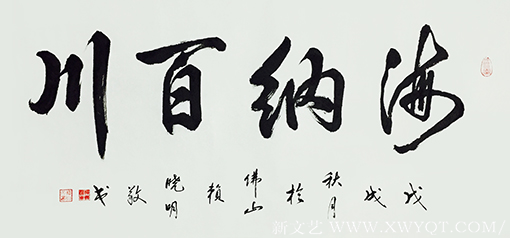 海纳百川
戊戌秋月於佛山赖晓明敬书
新文艺 WWW.XWYQT.COM